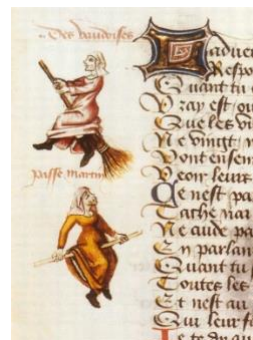 Des vaudoises
passe martin
Respo
Quant tu
Vray est ou
Que les vi
Ne vingt n
Dont ensem
Pour leurs
Ce nest pa
Ne aude pa
En parlan
Quant tu
Toutes les
Et nest au
Qui leur fo